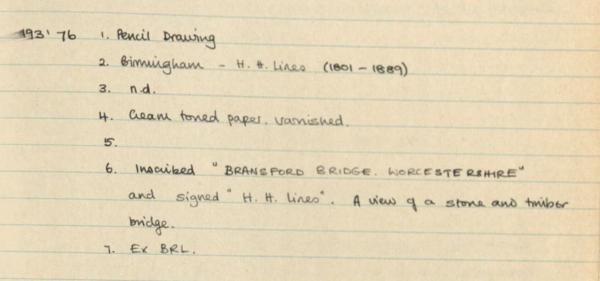 193' 76 1. Pencil Drawing
2. Birmingham - H. H. Lines (1801 - 1889)
3. n.d.
4. Cream toned paper. varnished.
5.
6. Inscribed "BRANSFORD BRIDGE. WORCESTERSHIRE"
and signed "H. H. Lines". A view of a stone and timber
bridge.
7. Ex BRL.